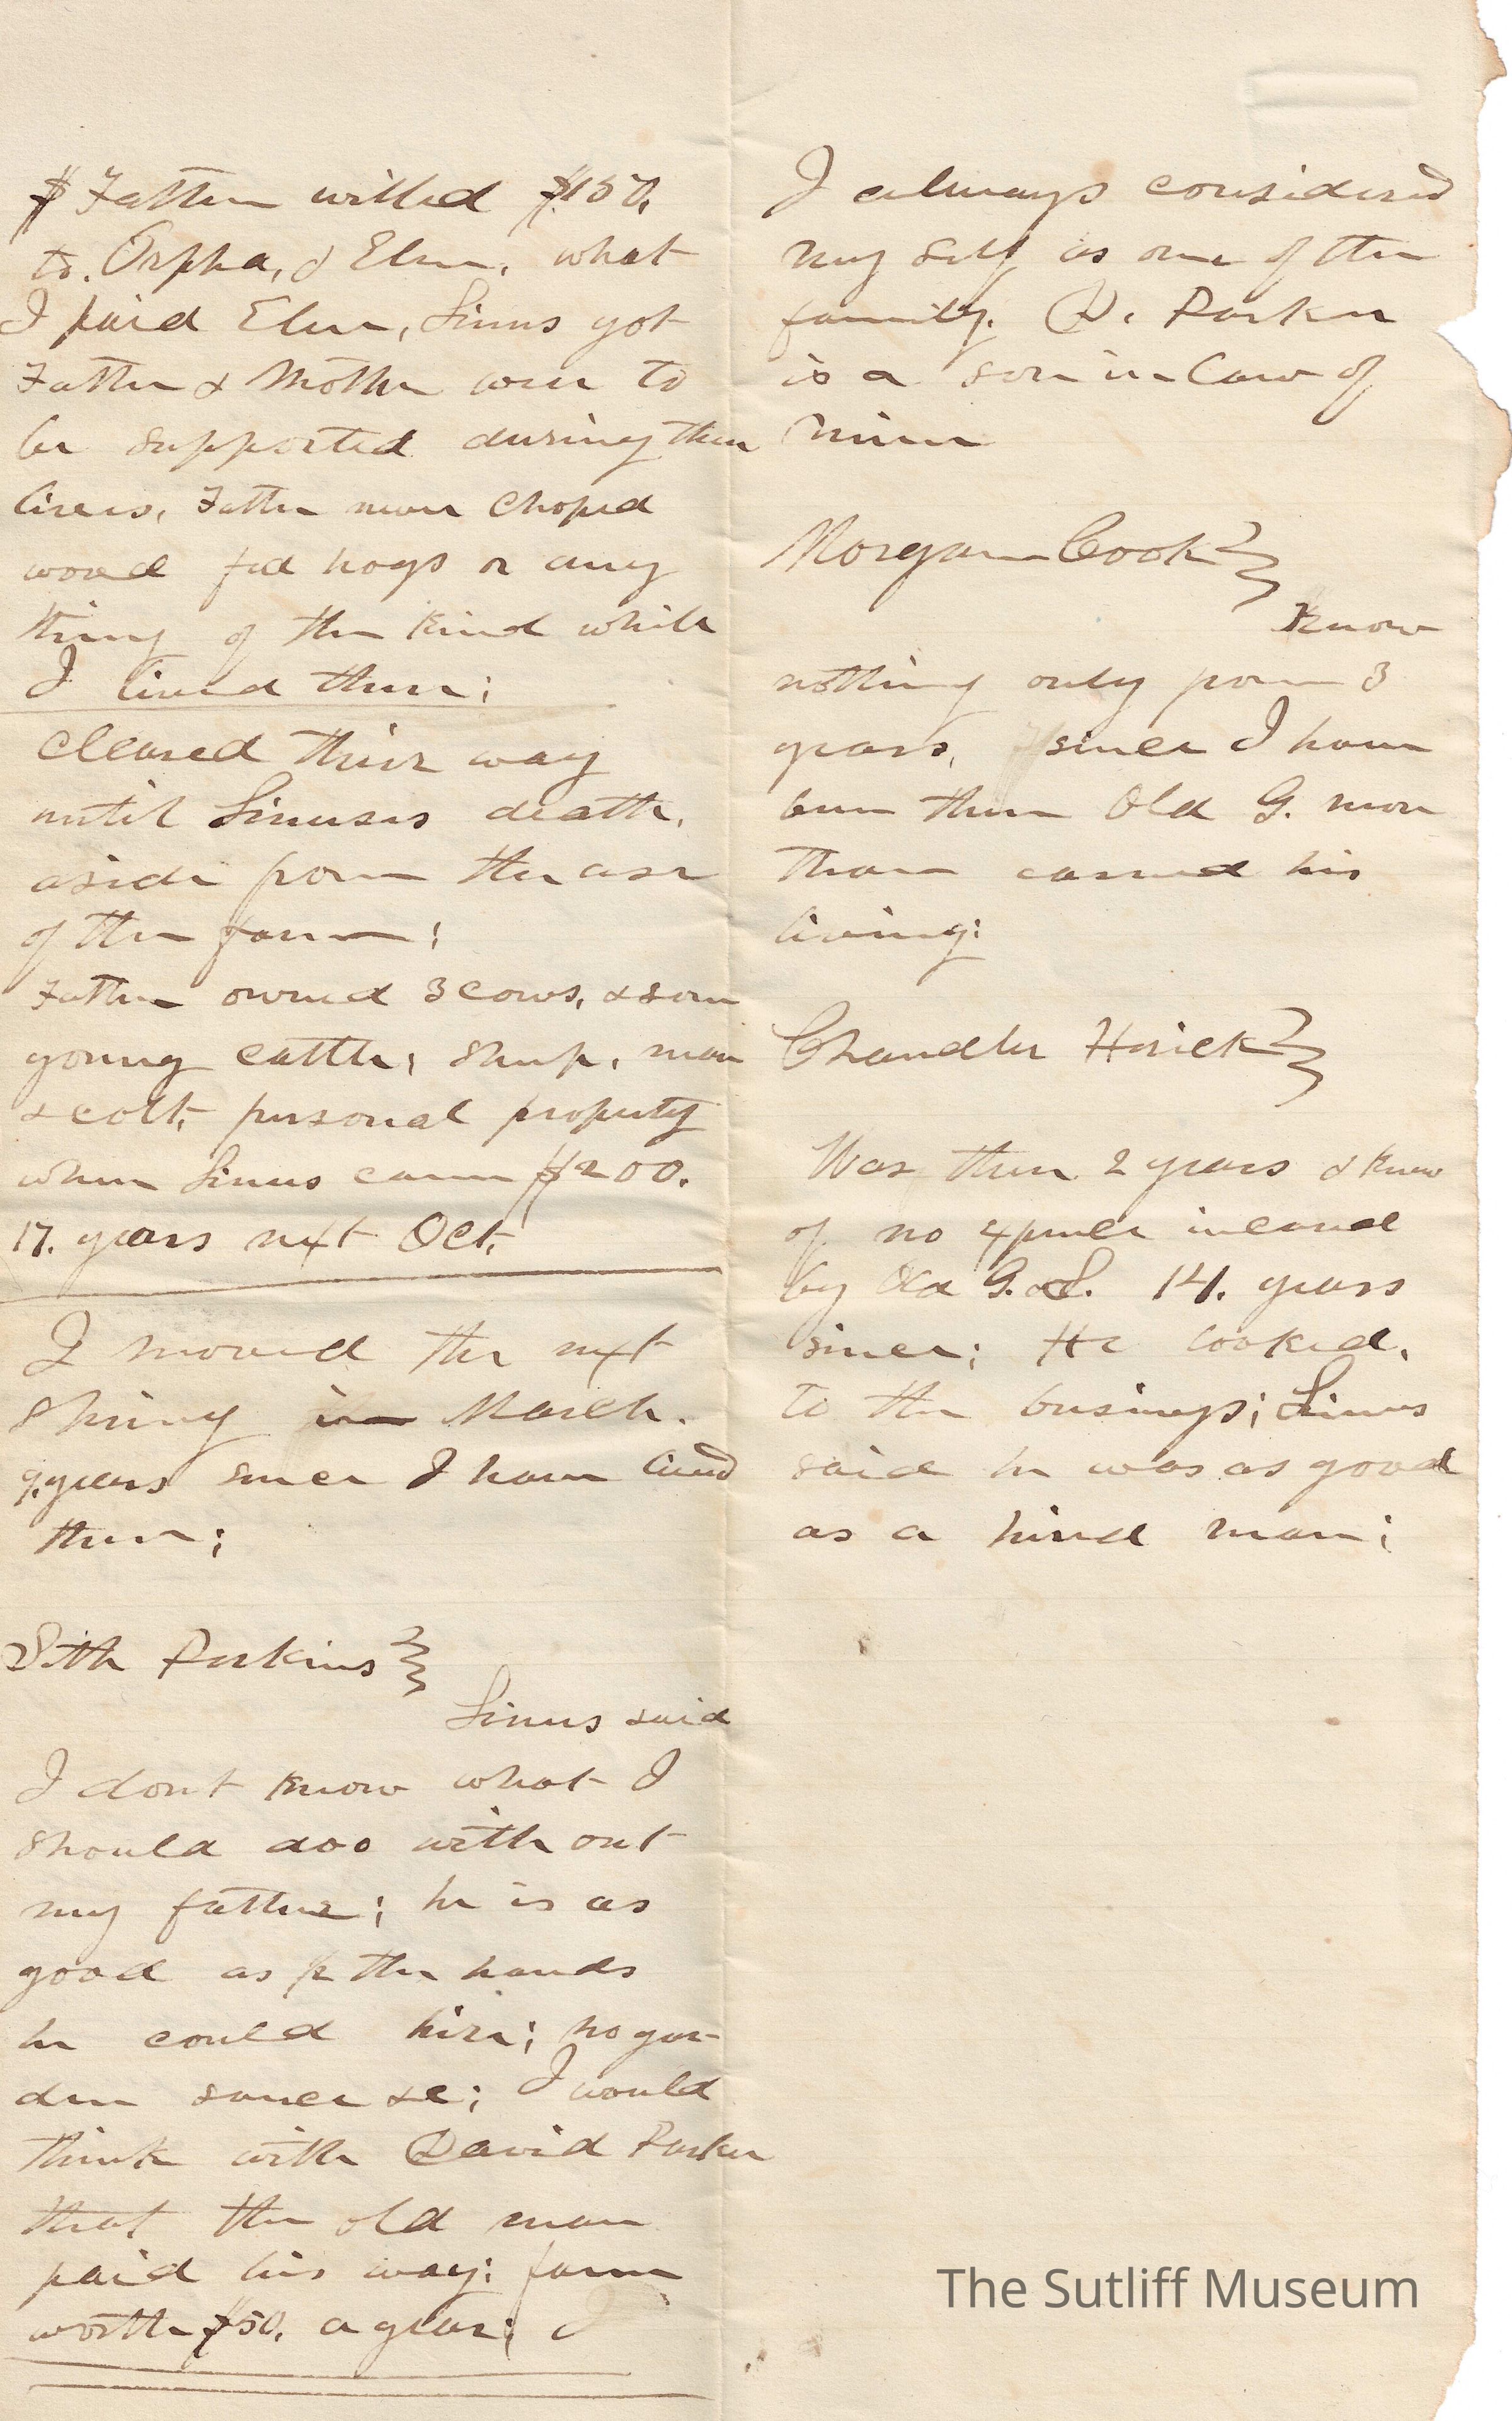 $ Father willed $150.
to. Orpha, & Elm. what
I paid Elm, Linus got
Father & Mother were to
be supported during their
lives, Father never choped
wood fed hogs or any
thing of the kind while
I lived there;
cleared their way
until Linuses death.
aside from the use
of the farm;
Father owned 3 cows, & som
young cattle, sheep, mare
& colt, personal property
when Linus came $200.
17. years next Oct,
I moved the next
Spring in March.
9. years since I have lived
there;
Seth Perkins
Linus said
I dont know what I
should doo with out
my father; he is as
good as the hands
he could hire; no gar-
den sauce &c; I would
think with David Parker
that the old man
paid his way; farm
worth $50. a year;
I always considered
my self as one of the
family. D. Parker
is a son in Law of
mine
Morgan Cook
Know
nothing only from 3
years, since I have
been there Old G. more
than earned his
living;
Chandler Hirick
Was there 2 years & knew
of no expence incured
by Old G. & L. 14. years
since; He looked,
to the business; Linus
said he was as good
as a hired man;
The Sutliff Museum